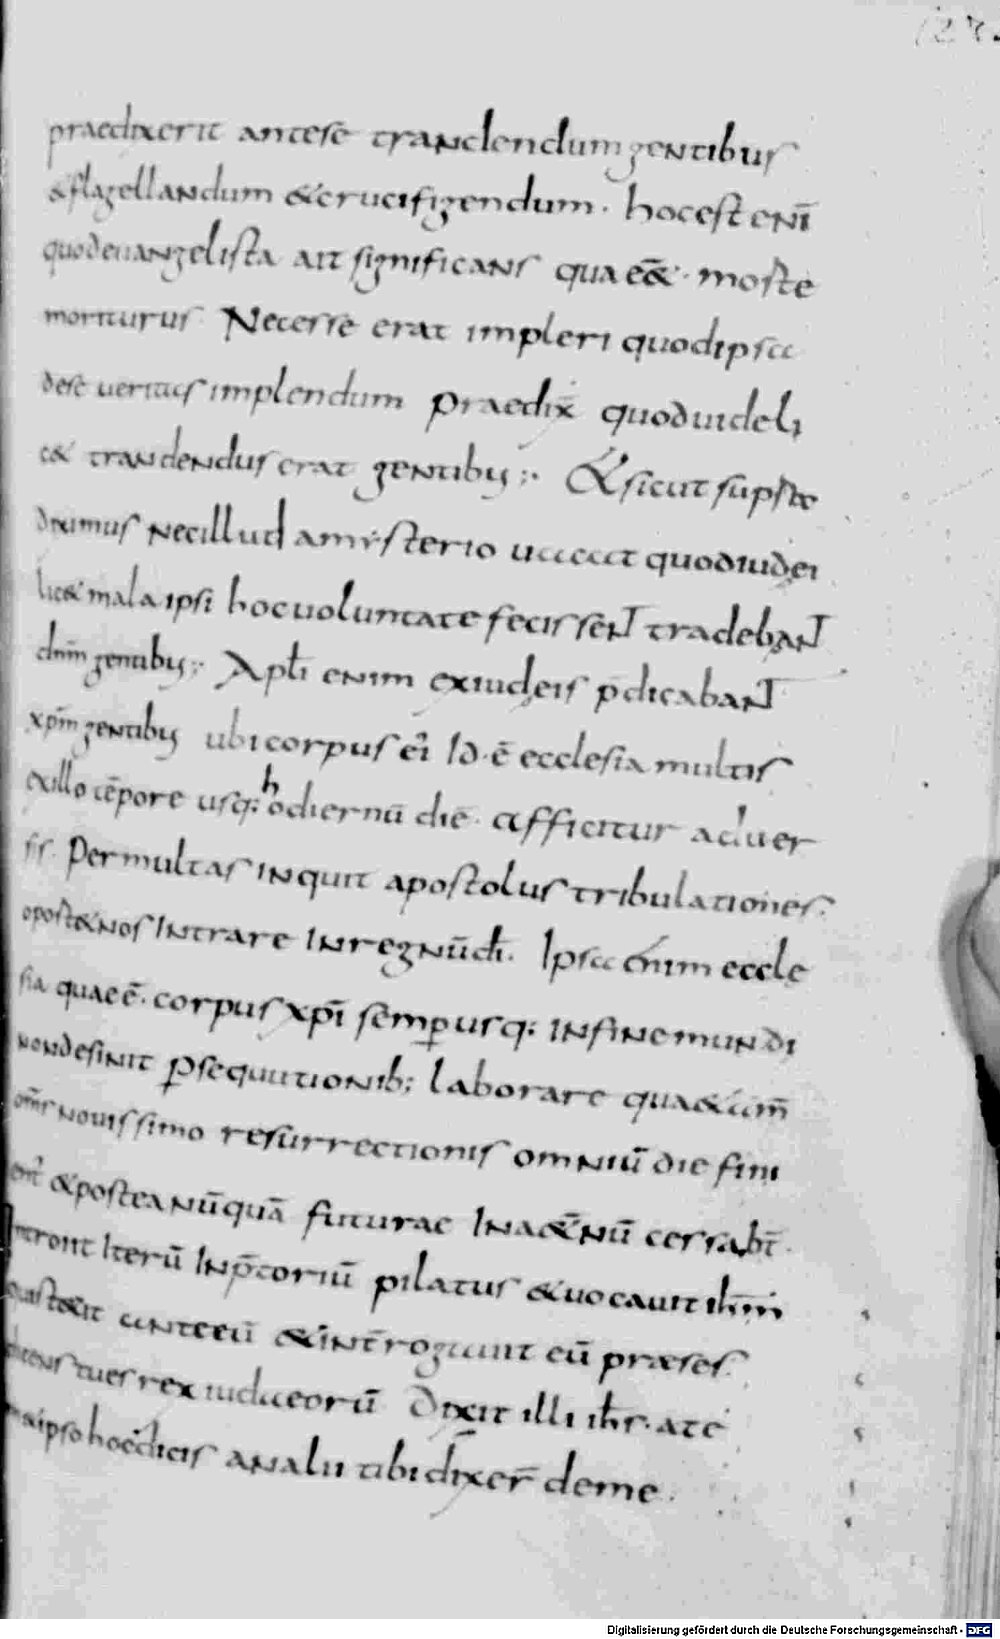 praedixerit antese trandendum gentibus
&flagellandum &crucifigendum. hocest enī
quodeuangelista ait significans qua eēt. moste
moriturus Necesse erat impleri quodipsa
dese ueritas implendum praedix̄ quod uideli
c& trandendus erat gentibus;. & sicut supste
diximus Necillud amysterio uacat quodiudei
lic& mala ipsi hocuoluntate fecissent tradebant
dn̄m gentibus;. Apłi enim exiudeis p̄dicabant
xpm̄ gentibus ubicorpus ei' Id.ē ecclesia multis
exillo tēpore usq; hodiernū diē. afficitur aduer
sis. Per multas inquit apostolus tribulationes.
oport&nos Intrare Inregnū dī. Ipsa enim eccle
sia quae ē. corpus xpī semp usq; inFine mundi
nondesinit psequutionib; laborare quae&iam̄
om̄s nouissimo resurrectionis omniū die fini
ent &postea nūquā futurae In aet̄nū cessabt̄.
Introiit Iterū Inp̄toriū pilatus &uocauit ih̄m
&int̄rogauit eū praeses.
dicens tues rex iudaeorū Dixit illi ih̄s. ate
ipso hocdicis analii tibi dixer̄ deme.
Digitalisierung gefördert durch die Deutsche Forschungsgemeinschaft - DFG